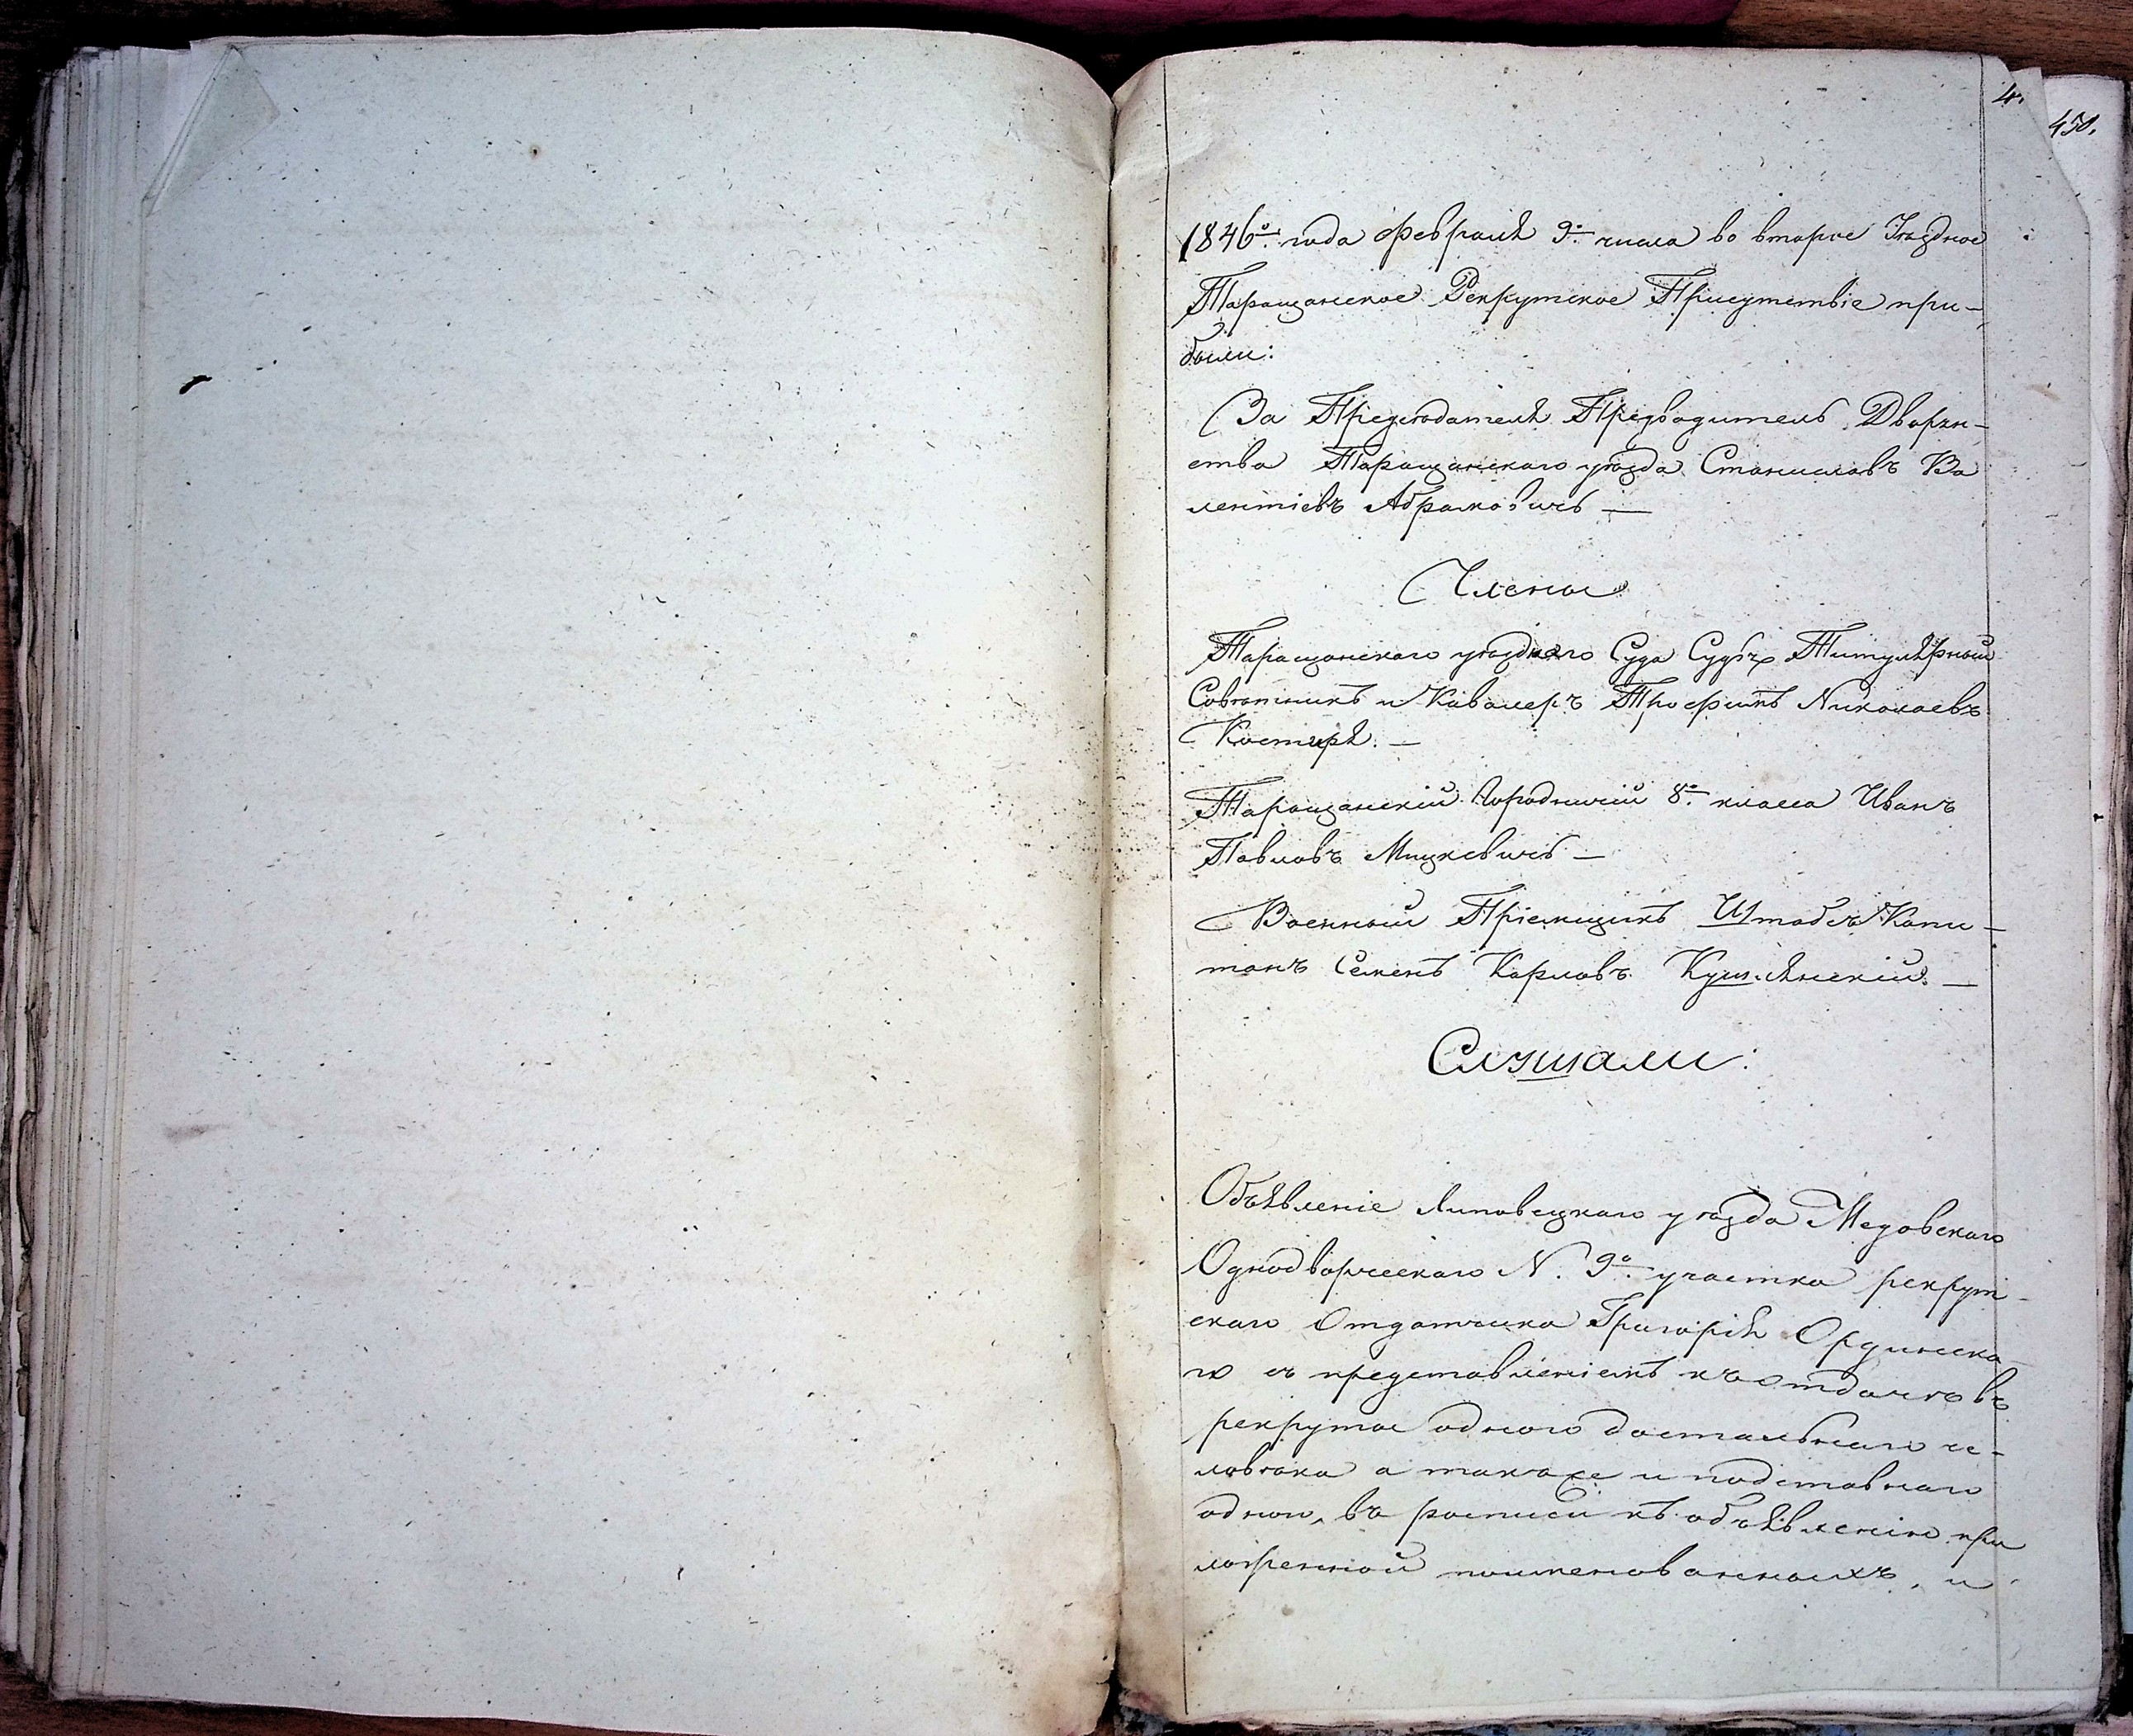 4.
450.
1846го. года Февраля 9го. числа во второе Уѣздное
Таращанское Рекрутское Присутствіе при-
были:
За Предсѣдателя Предводитель Дворян-
ства Таращанскаго уѣзда Станиславъ Ва
лентіевъ Абрамовичъ —
Члены
Таращанскаго уѣзднаго Суда Судья Титулярный
Совѣтникъ и Кавалеръ Трофимъ Николаевъ
Костыря. —
Таращанскій Городничій 8го. класса Иванъ
Павловъ Мицкевичъ —
Военный Пріемщикъ Штабсъ Капи-
танъ Семенъ Карловъ Кушлянскій. —
Слушали:
Объявленіе Липовецкаго уѣзда Медовскаго
Однодворческаго N. 9го. участка рекрут-
скаго Отдатчика Григорія Ордынска
го съ представленіемъ къ отдачѣ въ
рекруты одного достальнаго че-
ловѣка а также и подставнаго
одного, въ росписи къ объявленію при
ложенной поименованныхъ, и